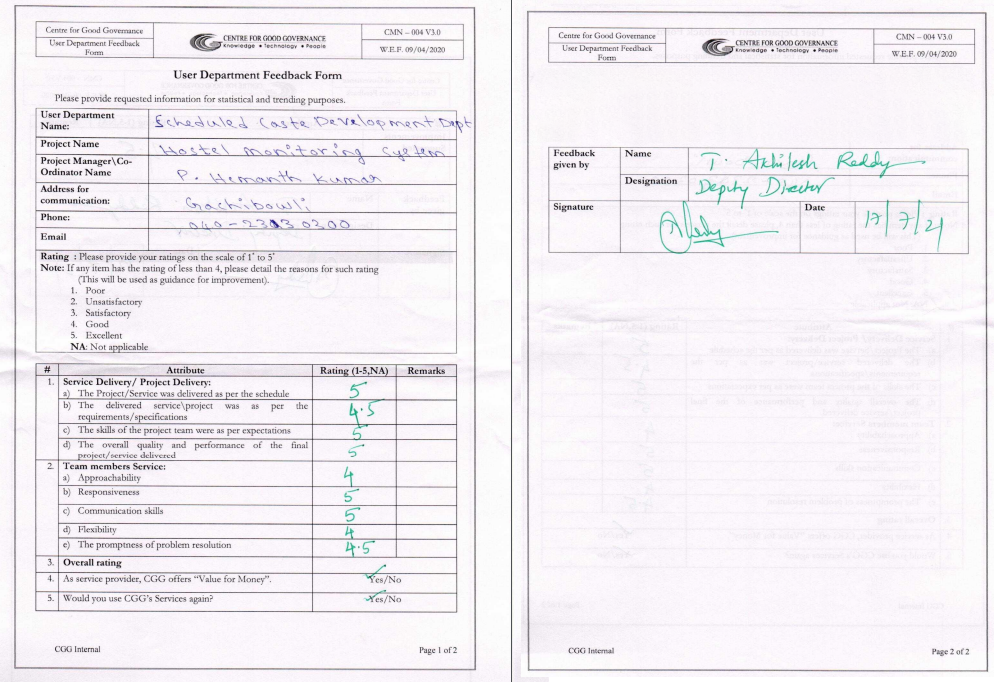 Centre for Good Governance
User Department Feedback
Form
CENTRE FOR GOOD GOVERNANCE
Knowledge • Technology • People
CMN – 004 V3.0
W.E.F. 09/04/2020
User Department Feedback Form
Please provide requested information for statistical and trending purposes.
User Department Name: Scheduled Caste Development Dept
Project Name Hostel monitoring System
Project Manager\Co-Ordinator Name P. Hemanth Kumar
Address for communication: Gachibowli
Phone: 040-2313 0300
Email
Rating : Please provide your ratings on the scale of 1' to 5'
Note: If any item has the rating of less than 4, please detail the reasons for such rating
(This will be used as guidance for improvement).
1. Poor
2. Unsatisfactory
3. Satisfactory
4. Good
5. Excellent
NA: Not applicable
# Attribute Rating (1-5,NA) Remarks
1. Service Delivery/ Project Delivery:
a) The Project/Service was delivered as per the schedule 5
b) The delivered service\project was as per the requirements/specifications 4.5
c) The skills of the project team were as per expectations 5
d) The overall quality and performance of the final project/service delivered 5
2. Team members Service:
a) Approachability 4
b) Responsiveness 5
c) Communication skills 5
d) Flexibility 4
e) The promptness of problem resolution 4.5
3. Overall rating
4. As service provider, CGG offers “Value for Money”. Yes/No
5. Would you use CGG’s Services again? Yes/No
CGG Internal
Page 1 of 2
Centre for Good Governance
User Department Feedback
Form
CENTRE FOR GOOD GOVERNANCE
Knowledge • Technology • People
CMN – 004 V3.0
W.E.F. 09/04/2020
Feedback given by
Name T. Akhilesh Reddy
Designation Deputy Director
Signature
Date 17/7/21
CGG Internal
Page 2 of 2